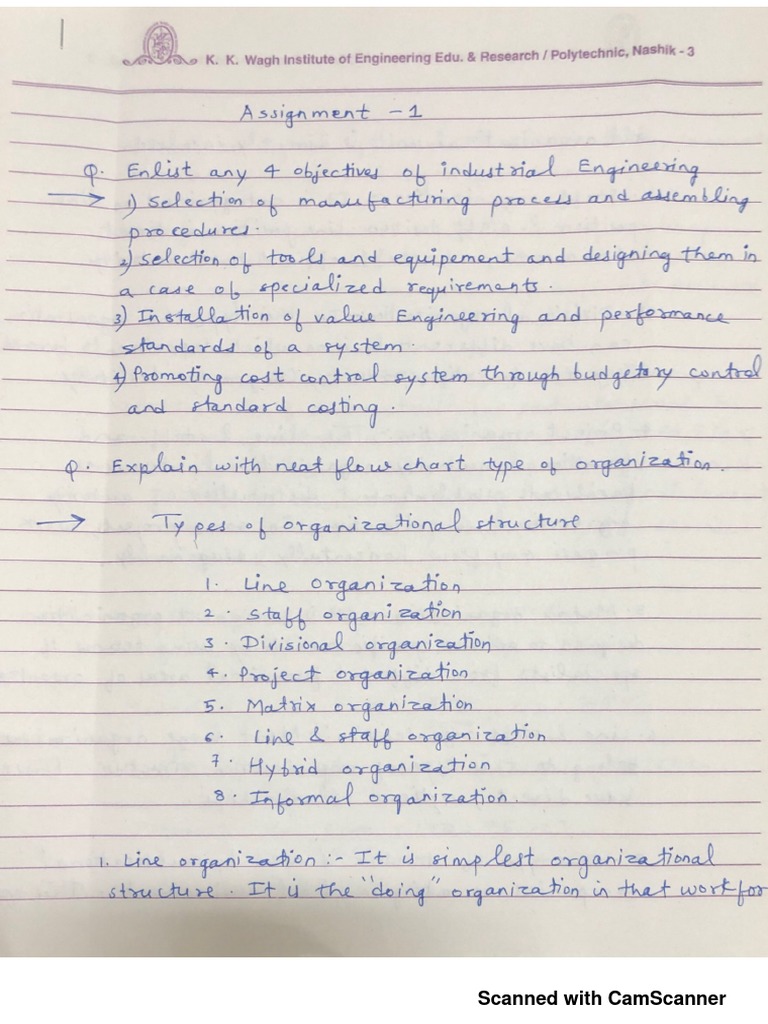 1
K. K. Wagh Institute of Engineering Edu. & Research / Polytechnic, Nashik - 3
Assignment - 1
Q. Enlist any 4 objectives of industrial Engineering
→ 1) Selection of manufacturing process and assembling
procedures.
2) Selection of tools and equipement and designing them in
a case of specialized requirements.
3) Installation of value Engineering and performance
standards of a system.
4) Promoting cost control system through budgetary control
and standard costing.
Q. Explain with neat flow chart type of organization.
→ Types of organizational structure
1. Line organization
2. Staff organization
3. Divisional organization
4. Project organization
5. Matrix organization
6. Line & staff organization
7. Hybrid organization
8. Informal organization.
1. Line organization :- It is simplest organizational
structure. It is the "doing" organization in that work for
Scanned with CamScanner